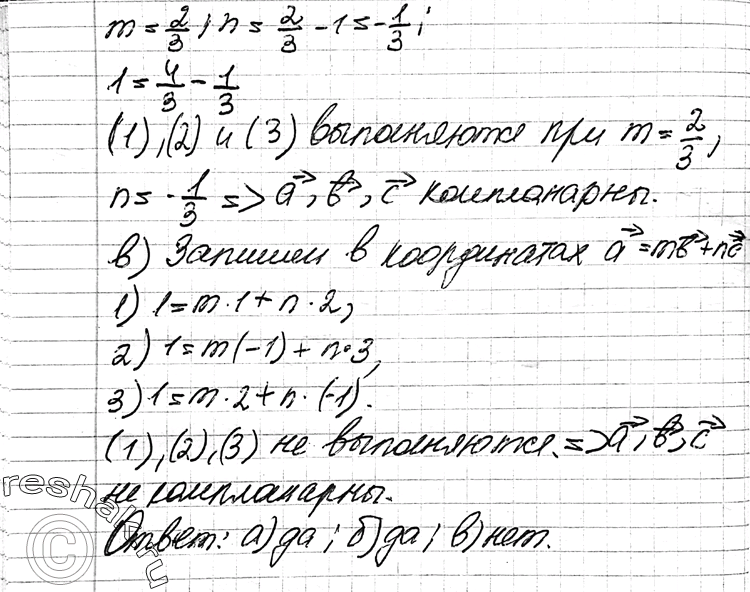 m = 2/3; n = 2/3 - 1 = -1/3;
1 = 4/3 - 1/3
(1), (2) и (3) выполняются при m = 2/3,
n = -1/3 => a⃗, b⃗, c⃗ компланарны.
в) Запишем в координатах a⃗ = mb⃗ + nc⃗
1) 1 = m·1 + n·2,
2) 1 = m(-1) + n·3,
3) 1 = m·2 + n·(-1).
(1), (2), (3) не выполняются. => a⃗, b⃗, c⃗
не компланарны.
Ответ: а) да; б) да; в) нет.
reshak.ru
©